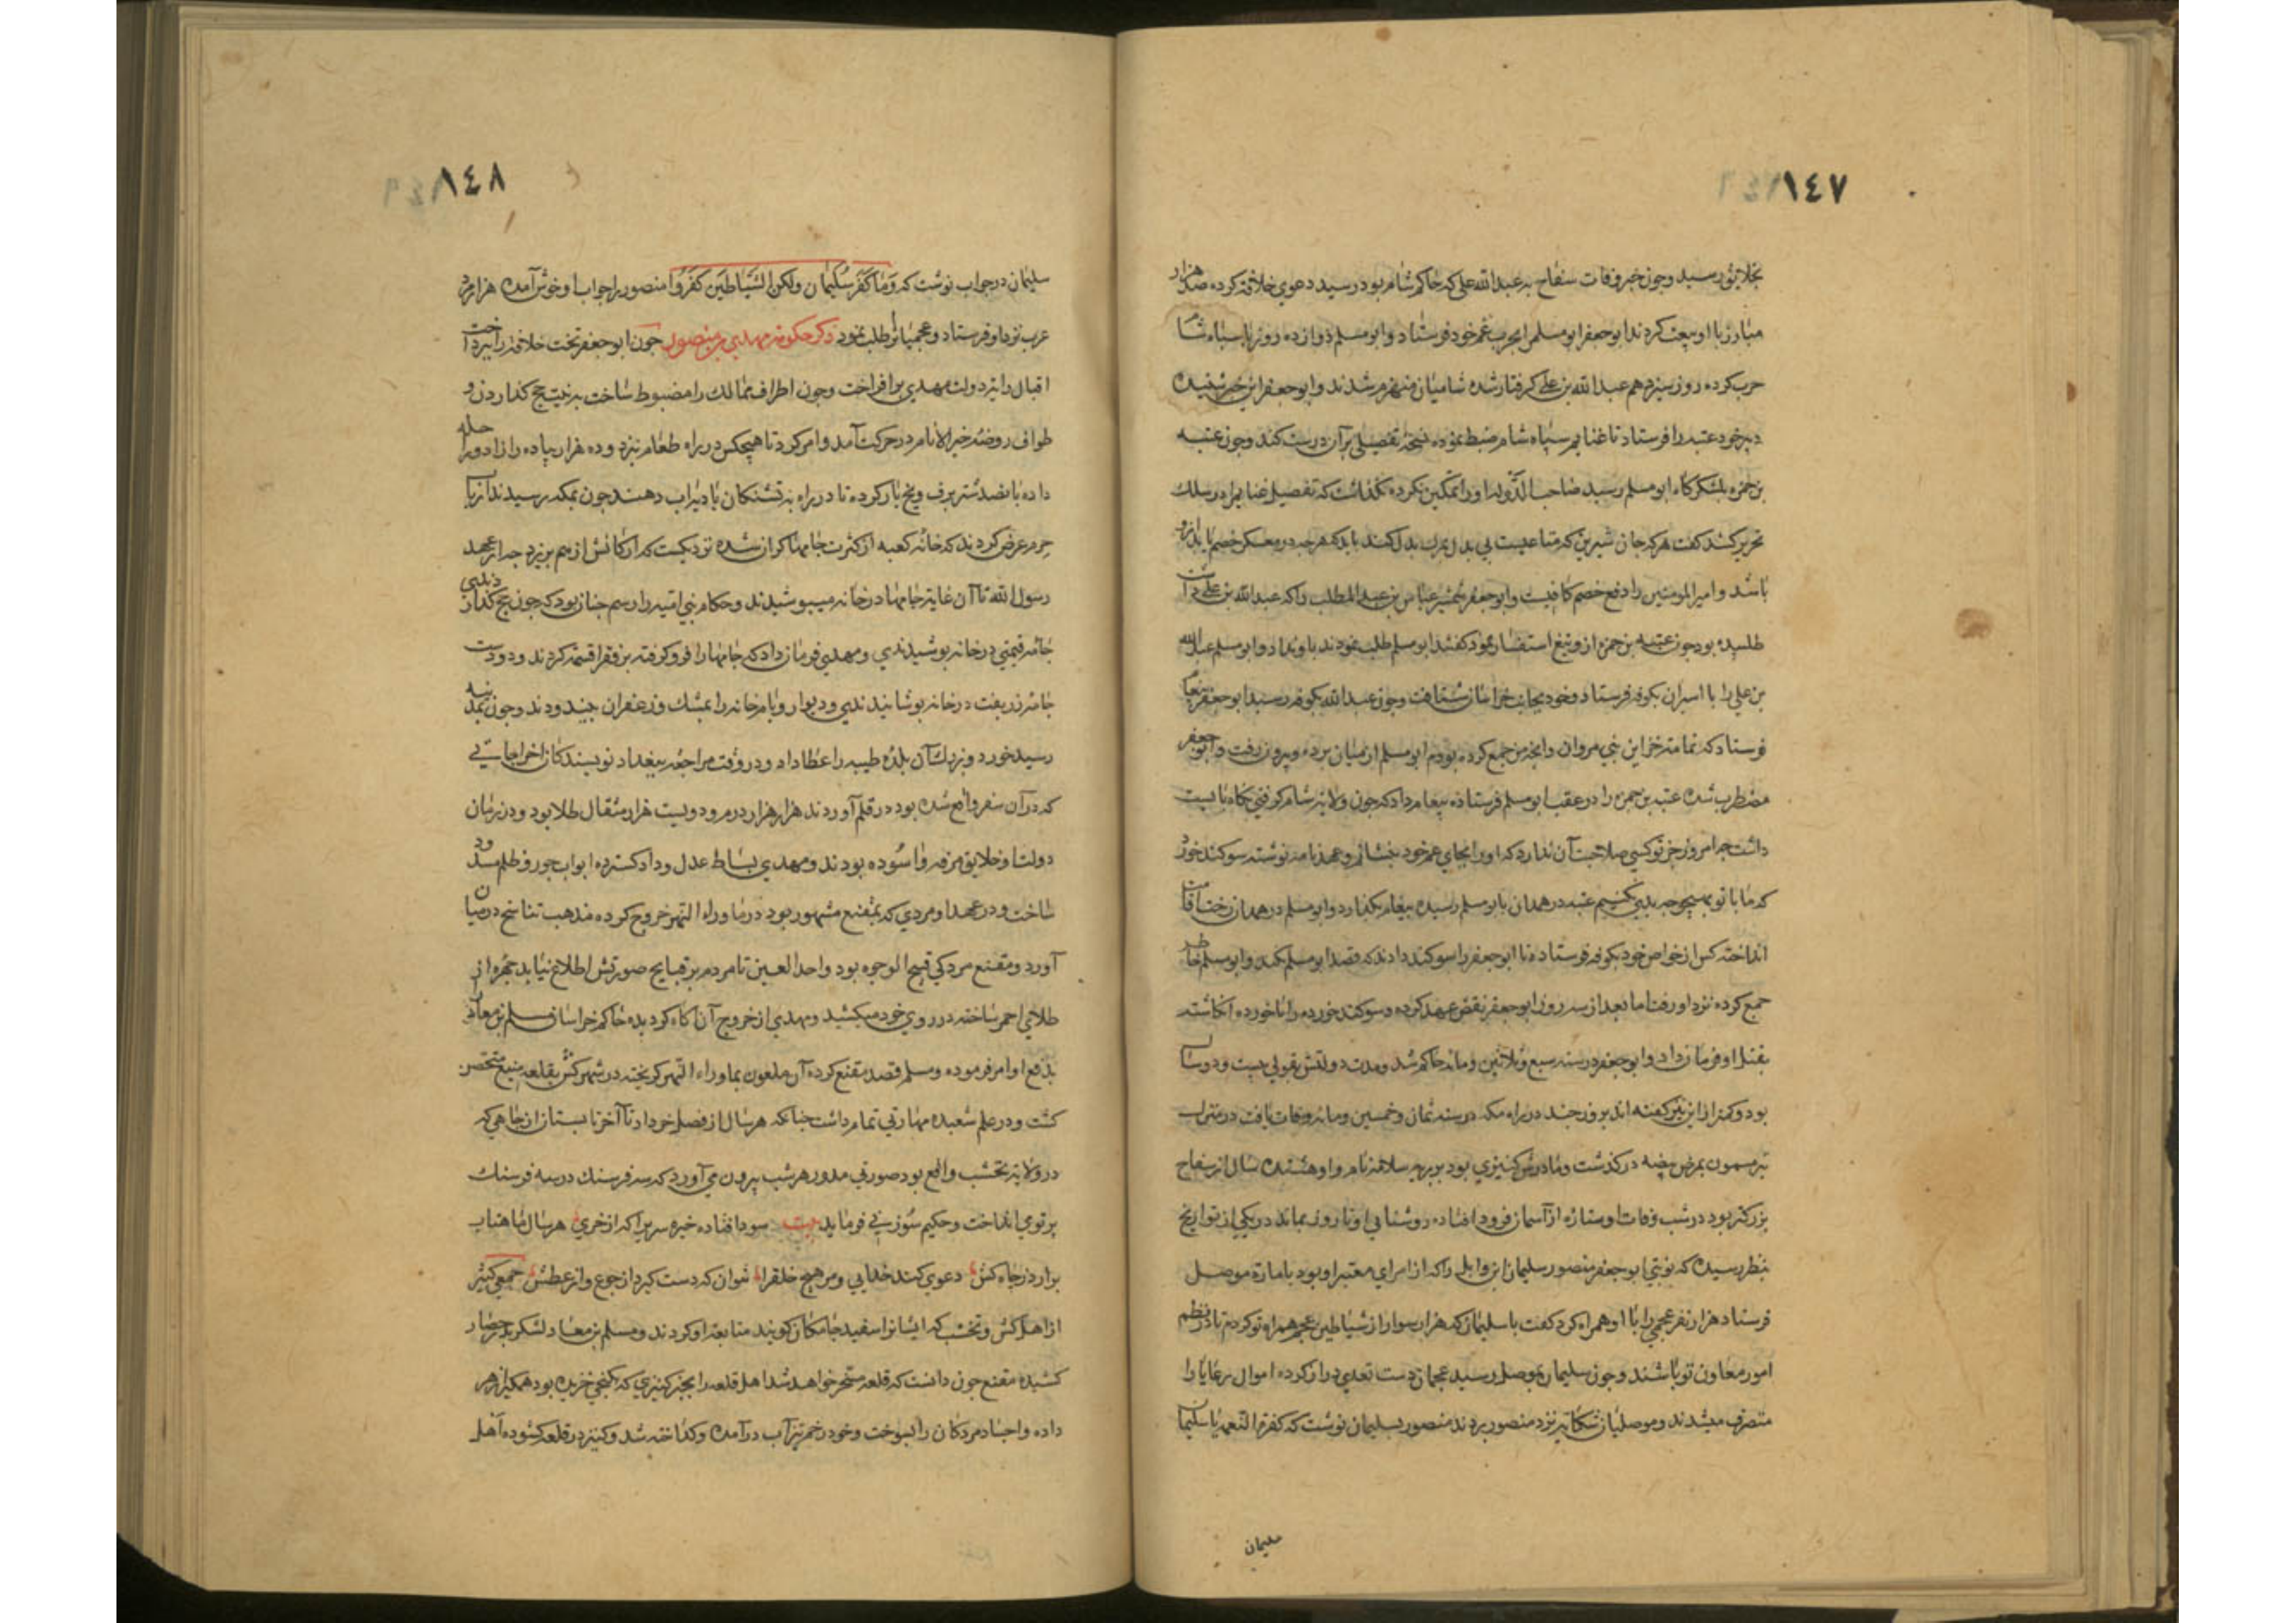 ١٤٧
بخلایق رسید و چون خبر وفات سفاح به عبدالله علی که حاکم شام بود رسید دعوی خلافة کرده صد هزار
مبارز با او بیعت کردند ابوجعفر ابومسلم را بحرب عم خود فرستاد و ابومسلم دوازده روز با سپاه شام
حرب کرده روز سیزدهم عبدالله بن علی کرفتار شده شامیان منهزم شدند و ابوجعفر این خبر شنیده
دبیر خود عتبه را فرستاد تا غنایم سپاه شام ضبط نموده نسخهٔ تفصیلی بر آن درست کند و چون عتبه
بن حمزه بلشکرکاه ابومسلم رسید صاحب الدوله او را تمکین نکرده نکذاشت که تفصیل غنایم را در سلک
تحریر کشد کفت هرکه جان شیرین که متاعیست بی بدل بمرک بدل کند باید که هرچه در معسکر خصم یابد از او
باشد و امیر المومنین را دفع خصم کافیست و ابوجعفر شمشیر عباس بن عبدالمطلب را که عبدالله بن علی داشت
طلبیده بود چون عتبه بن حمزه از و تیغ استفسار نمود کفتند ابومسلم طلب نمودند باو نداد و ابومسلم عبدالله
بن علی را با اسیران بکوفه فرستاد و خود بجانب خراسان شتافت و چون عبدالله بکوفه رسید ابوجعفر
فرستاد که تمامت خزاین بنی مروان و انچه من جمع کرده بودم ابومسلم از میان برده و بیرون رفت و ابوجعفر
مضطرب شده عتبه بن حمزه را در عقب ابومسلم فرستاده پیغام داد که چون ولایة شام کرفتی نکاه بایست
داشت چه امروز جز تو کسی صلاحیت آن ندارد که او را بجای عم خود بنشانم و عهدنامه نوشته سوکند خورد
که ما با تو بهیچوجه بدی نکنیم عتبه در همدان بابومسلم رسیده پیغام بکذارد و ابومسلم در همدان رخت اقامت
انداخته کس از خواص خود بکوفه فرستاده تا ابوجعفر را سوکند دادند که قصد ابومسلم نکند و ابومسلم خاطر
جمع کرده نزد او رفت اما بعد از سه روز ابوجعفر نقض عهد کرده و سوکند خورده را ناخورده انکاشته
بقتل او فرمان داد و ابوجعفر در سنه سبع و ثلاثین و مائه حاکم شد و مدت دولتش بقولی بیست و دو سال
بود و کمتر از این نیز کفته اند بروز چند در راه مکه در سنه ثمان و خمسین و مائه وفات یافت در منزل
بئر میمون بمرض هیضه درکذشت و مادرش کنیزی بود بربریه سلامة نام و او هشت ده سال از سفاح
بزرکتر بود در شب وفات او ستاره از آسمان فرود افتاده روشنایی او تا روز بماند در یکی از تواریخ
بنظر رسیده که نوبتی ابوجعفر منصور سلیمان ابن وابل را که از امرای معتبر او بود بامارة موصل
فرستاد هزار نفر عجمی را با او همراه کرد کفت با سلیمان که هزار سوار از شیاطین عجم همراه تو کردم تا در نظم
امور معاون تو باشند و چون سلیمان بموصل رسید عجمان دست تعدی دراز کرده اموال رعایا را
متصرف میشدند و موصلیان شکایة نزد منصور بردند منصور بسلیمان نوشت که کفرة النعمه یا سلیمان
سلیمان
١٤٨
سلیمان در جواب نوشت که وَمَا کَفَرَ سُلَیْمَان ولکن الشَّیَاطِینَ کَفَرُوا منصور را جواب او خوش آمده هزار مرد
عرب نزد او فرستاد و عجمیانرا طلب نمود ذکر حکومة مهدی بن منصور چون ابوجعفر تخت خلافة را بپرداخت
اقبال رایة دولت مهدی برافراخت و چون اطراف ممالک را مضبوط ساخت به نیت حج کذاردن و
طواف روضه خیر الانام در حرکت آمد و امر کرد تا هیچکس در راه طعام نپزد و ده هزار پیاده را زاد و راحله
داده پانصد شتر برف و یخ بار کرده تا در راه به تشنکان بادیه آب دهند چون بمکه رسیدند ارباب
حرم عرض کردند که خانه کعبه از کثرت جامها کران شده نزدیکست که ارکانش از هم بریزد چه از عهد
رسول الله تا آن غایة جامها در خانه میپوشیدند و حکام بنی امیه را رسم چنان بود که چون حج کذاردندی
جامه قیمتی در خانه پوشیدندی و مهدی فرمان داد که جامها را فرو کرفته بر فقرا قسمة کردند و دویست
جامه زربفت در خانه پوشانیدندی و دیوار و بام خانه را بمشک و زعفران بیندودند و چون بمدینه
رسید خورد و بزرک آن بلدهٔ طیبه را عطا داد و در وقت مراجعه ببغداد نویسندکان اخراجاتی
که در آن سفر واقع شده بود در قلم آوردند هزار هزار درم و دویست هزار مثقال طلا بود و در زمان
دولت او خلایق مرفه و آسوده بودند و مهدی بساط عدل و داد کسترده ابواب جور و ظلم مسدود
ساخت و در عهد او مردی که بمقنع مشهور بود در ماوراء النهر خروج کرده مذهب تناسخ در میان
آورد و مقنع مردکی قبیح الوجوه بود واحد العین تا مردم بر قبایح صورتش اطلاع نیابد چهره از
طلای احمر ساخته در روی خود میکشید و مهدی از خروج آن آکاه کردیده حاکم خراسان مسلم بن معاد
بدفع او امر فرموده و مسلم قصد مقنع کرده آن ملعون بماوراء النهر کریخته در شهر کش بقلعه منیع متحصن
کشت و در علم شعبده مهارتی تمام داشت چنانکه هر سال از فصل خرداد تا آخر تابستان از چاهی که
در ولایة نخشب واقع بود صورتی مدور هر شب بیرون می آورد که سه فرسنک در سه فرسنک
پرتو می انداخت و حکیم سوزنی فرماید بیت سودا فتاده خیره سریرا که از خری هر سال ماهتاب
برآرد ز چاه کش دعوی کند خدایی و مر هیچ خلقرا نتوان که دست کیرد از جوع و از عطش جمعی کثیر
از اهل کش و نخشب که ایشانرا سفید جامکان کویند متابعة او کردند و مسلم بن معاد لشکر بدر حصار
کشیده مقنع چون دانست که قلعه مسخر خواهد شد اهل قلعه را بجز کنیزی که بکنجی خزیده بود همکی را زهر
داده و اجساد مردکان را بسوخت و خود در خم تیزآب درآمده و کداخته شد و کنیز در قلعه کشوده اهل